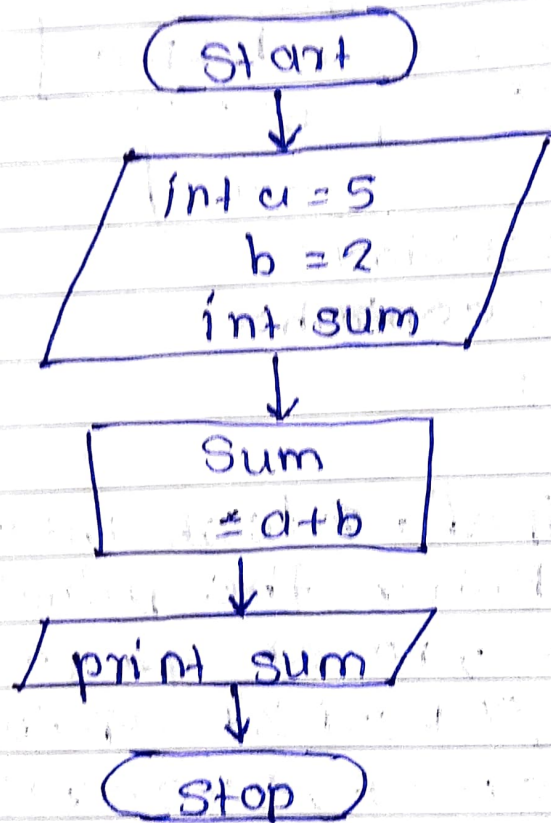 Start
int a = 5
b = 2
int sum
Sum
= a+b
print sum
Stop